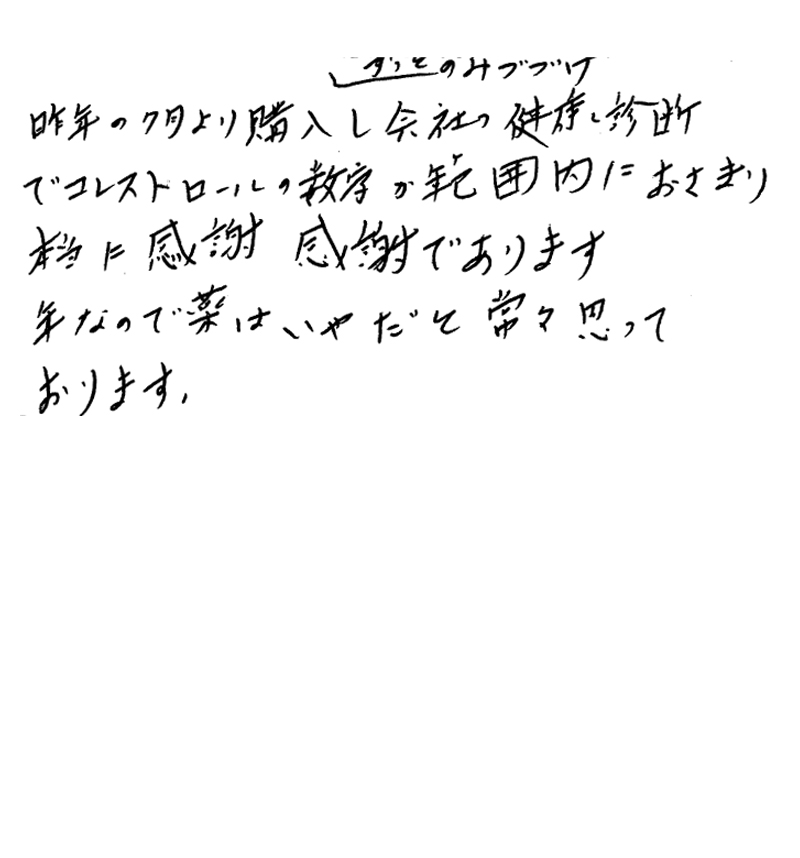 ずっとのみつづけ
昨年の7月より購入し会社の健康診断
でコレストロールの数字が範囲内におさまり
本当に感謝 感謝であります
年なので薬はいやだと常々思って
おります。